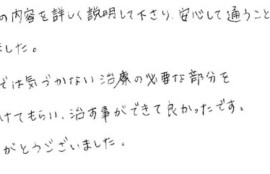 の内容を詳しく説明して下さり、安心して通うこと
ました。
では気づかない治療の必要な部分を
けてもらい、治す事ができて良かったです。
がとうございました。